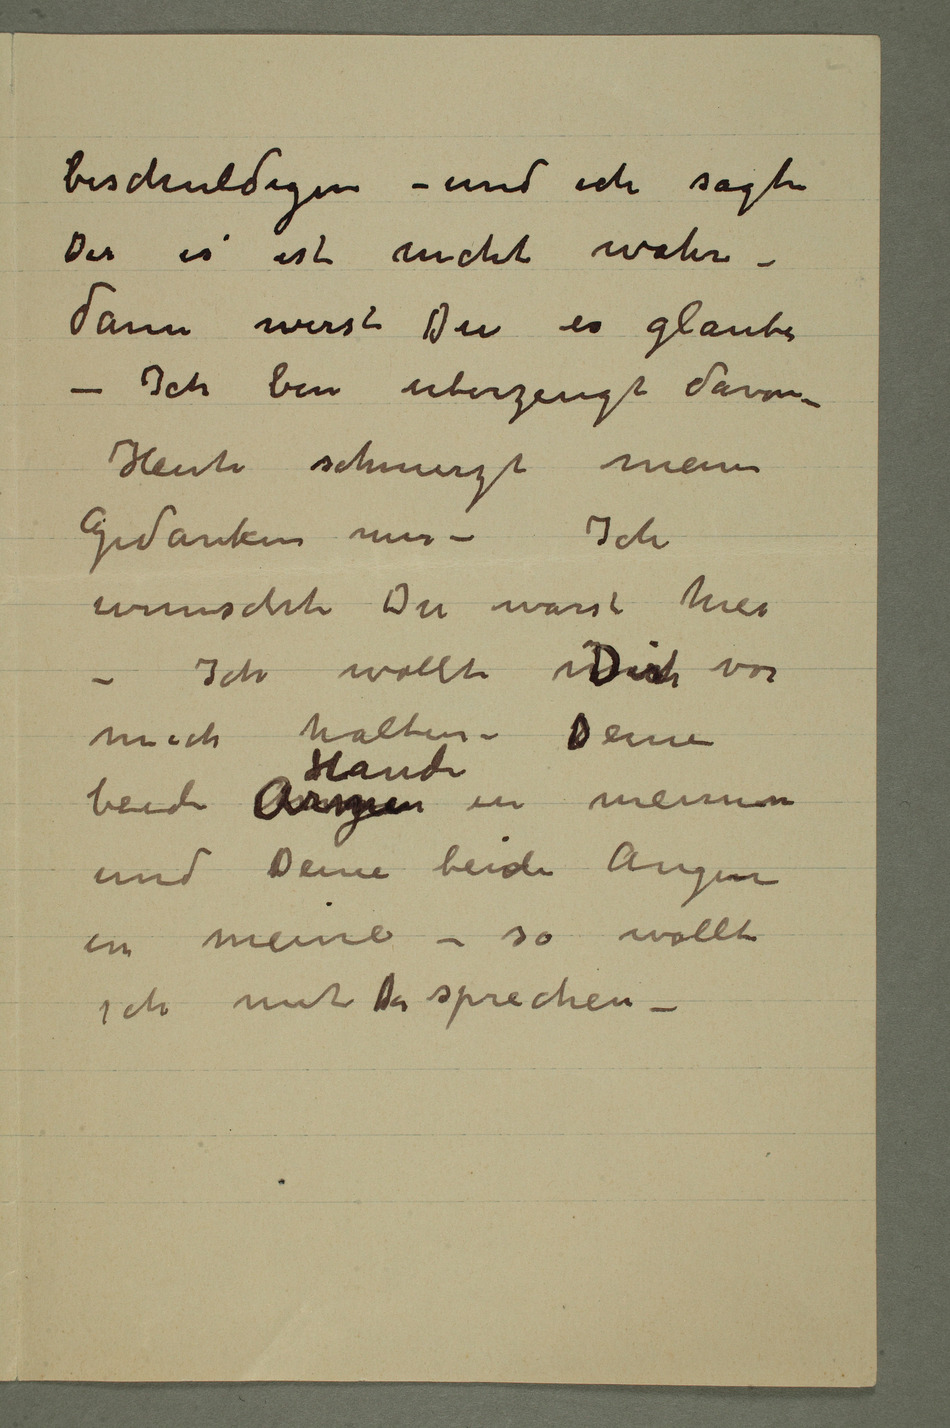 beschuldigen – und ich sagte
Dir es ist nicht wahr –
dann wirst Du es glauben
– Ich bin uberzeugt davon –
Heute schmerzt meine
Gedanken mir – Ich
wunschte Du warst hier
– Ich wollte Dich vor
mich halten – Deine
Hände
beide Armen in meinen
und Deine beide Augen
in meine – so wollte
ich mit Dir sprechen –